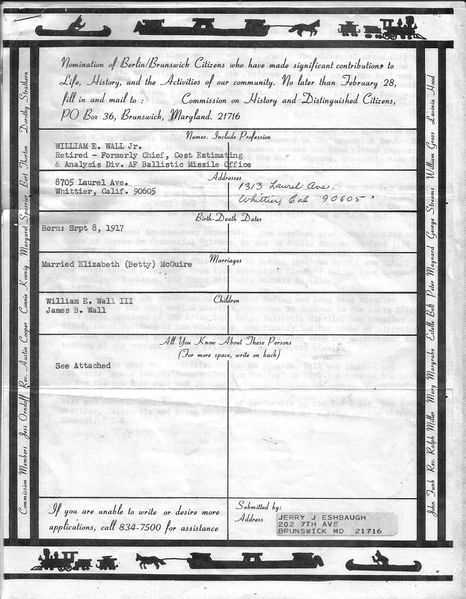 Nomination of Berlin/Brunswick Citizens who have made significant contributions to
Life, History, and the Activities of our community. No later than February 28,
fill in and mail to : Commission on History and Distinguished Citizens,
PO Box 36, Brunswick, Maryland. 21716
Names. Include Profession
WILLIAM E. WALL Jr.
Retired - Formerly Chief, Cost Estimating
& Analysis Div. AF Ballistic Missile Office
Addresses
8705 Laurel Ave.
Whittier, Calif. 90605
1313 Laurel Ave.
Whittier, Cal 90605
Birth-Death Dates
Born: Srpt 8, 1917
Marriages
Married Elizabeth (Betty) McGuire
Children
William E. Wall III
James B. Wall
All You Know About These Persons
(For more space, write on back)
See Attached
If you are unable to write or desire more
applications, call 834-7500 for assistance
Submitted by:
Address
JERRY J ESHBAUGH
202 7TH AVE
BRUNSWICK MD 21716
Commission Members Jess Orndoff Rev. Austin Cooper Connie Koenig Margaret Spurrier Bert Thornton Dorothy Strathern
John Funk Rev. Ralph Miller Mary Margrabe Estelle Bell Peter Maynard George Stevens William Gross Lavinia Hood